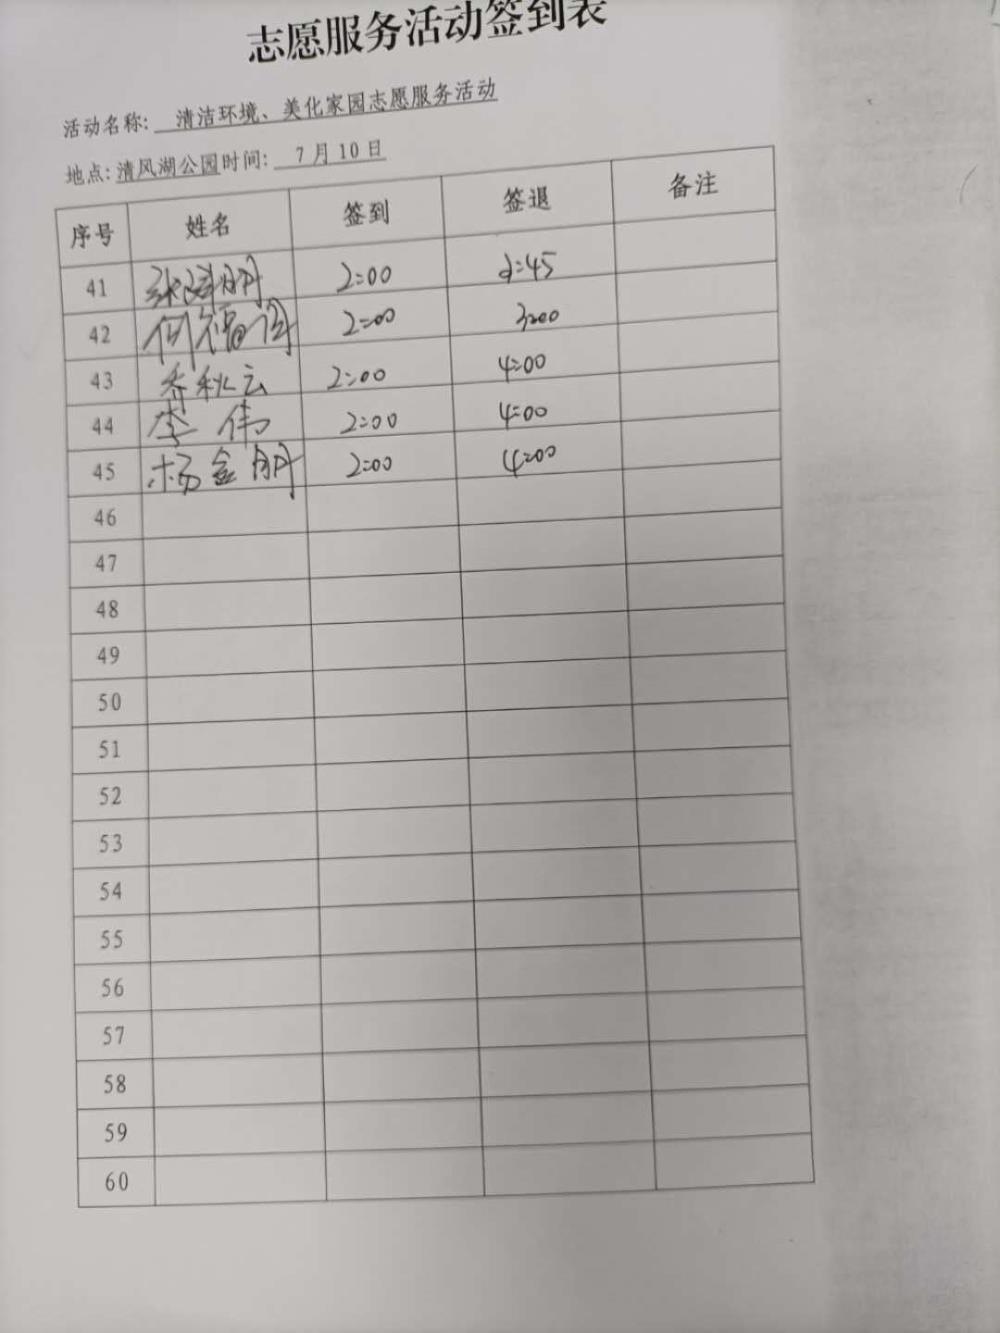 志愿服务活动签到表
活动名称: 清洁环境、美化家园志愿服务活动
地点: 清风湖公园 时间: 7月10日
序号 姓名 签到 签退 备注
41 2:00 2:45
42 2:00 3:00
43 乔秋云 2:00 4:00
44 李伟 2:00 4:00
45 杨金朋 2:00 4:00
46
47
48
49
50
51
52
53
54
55
56
57
58
59
60